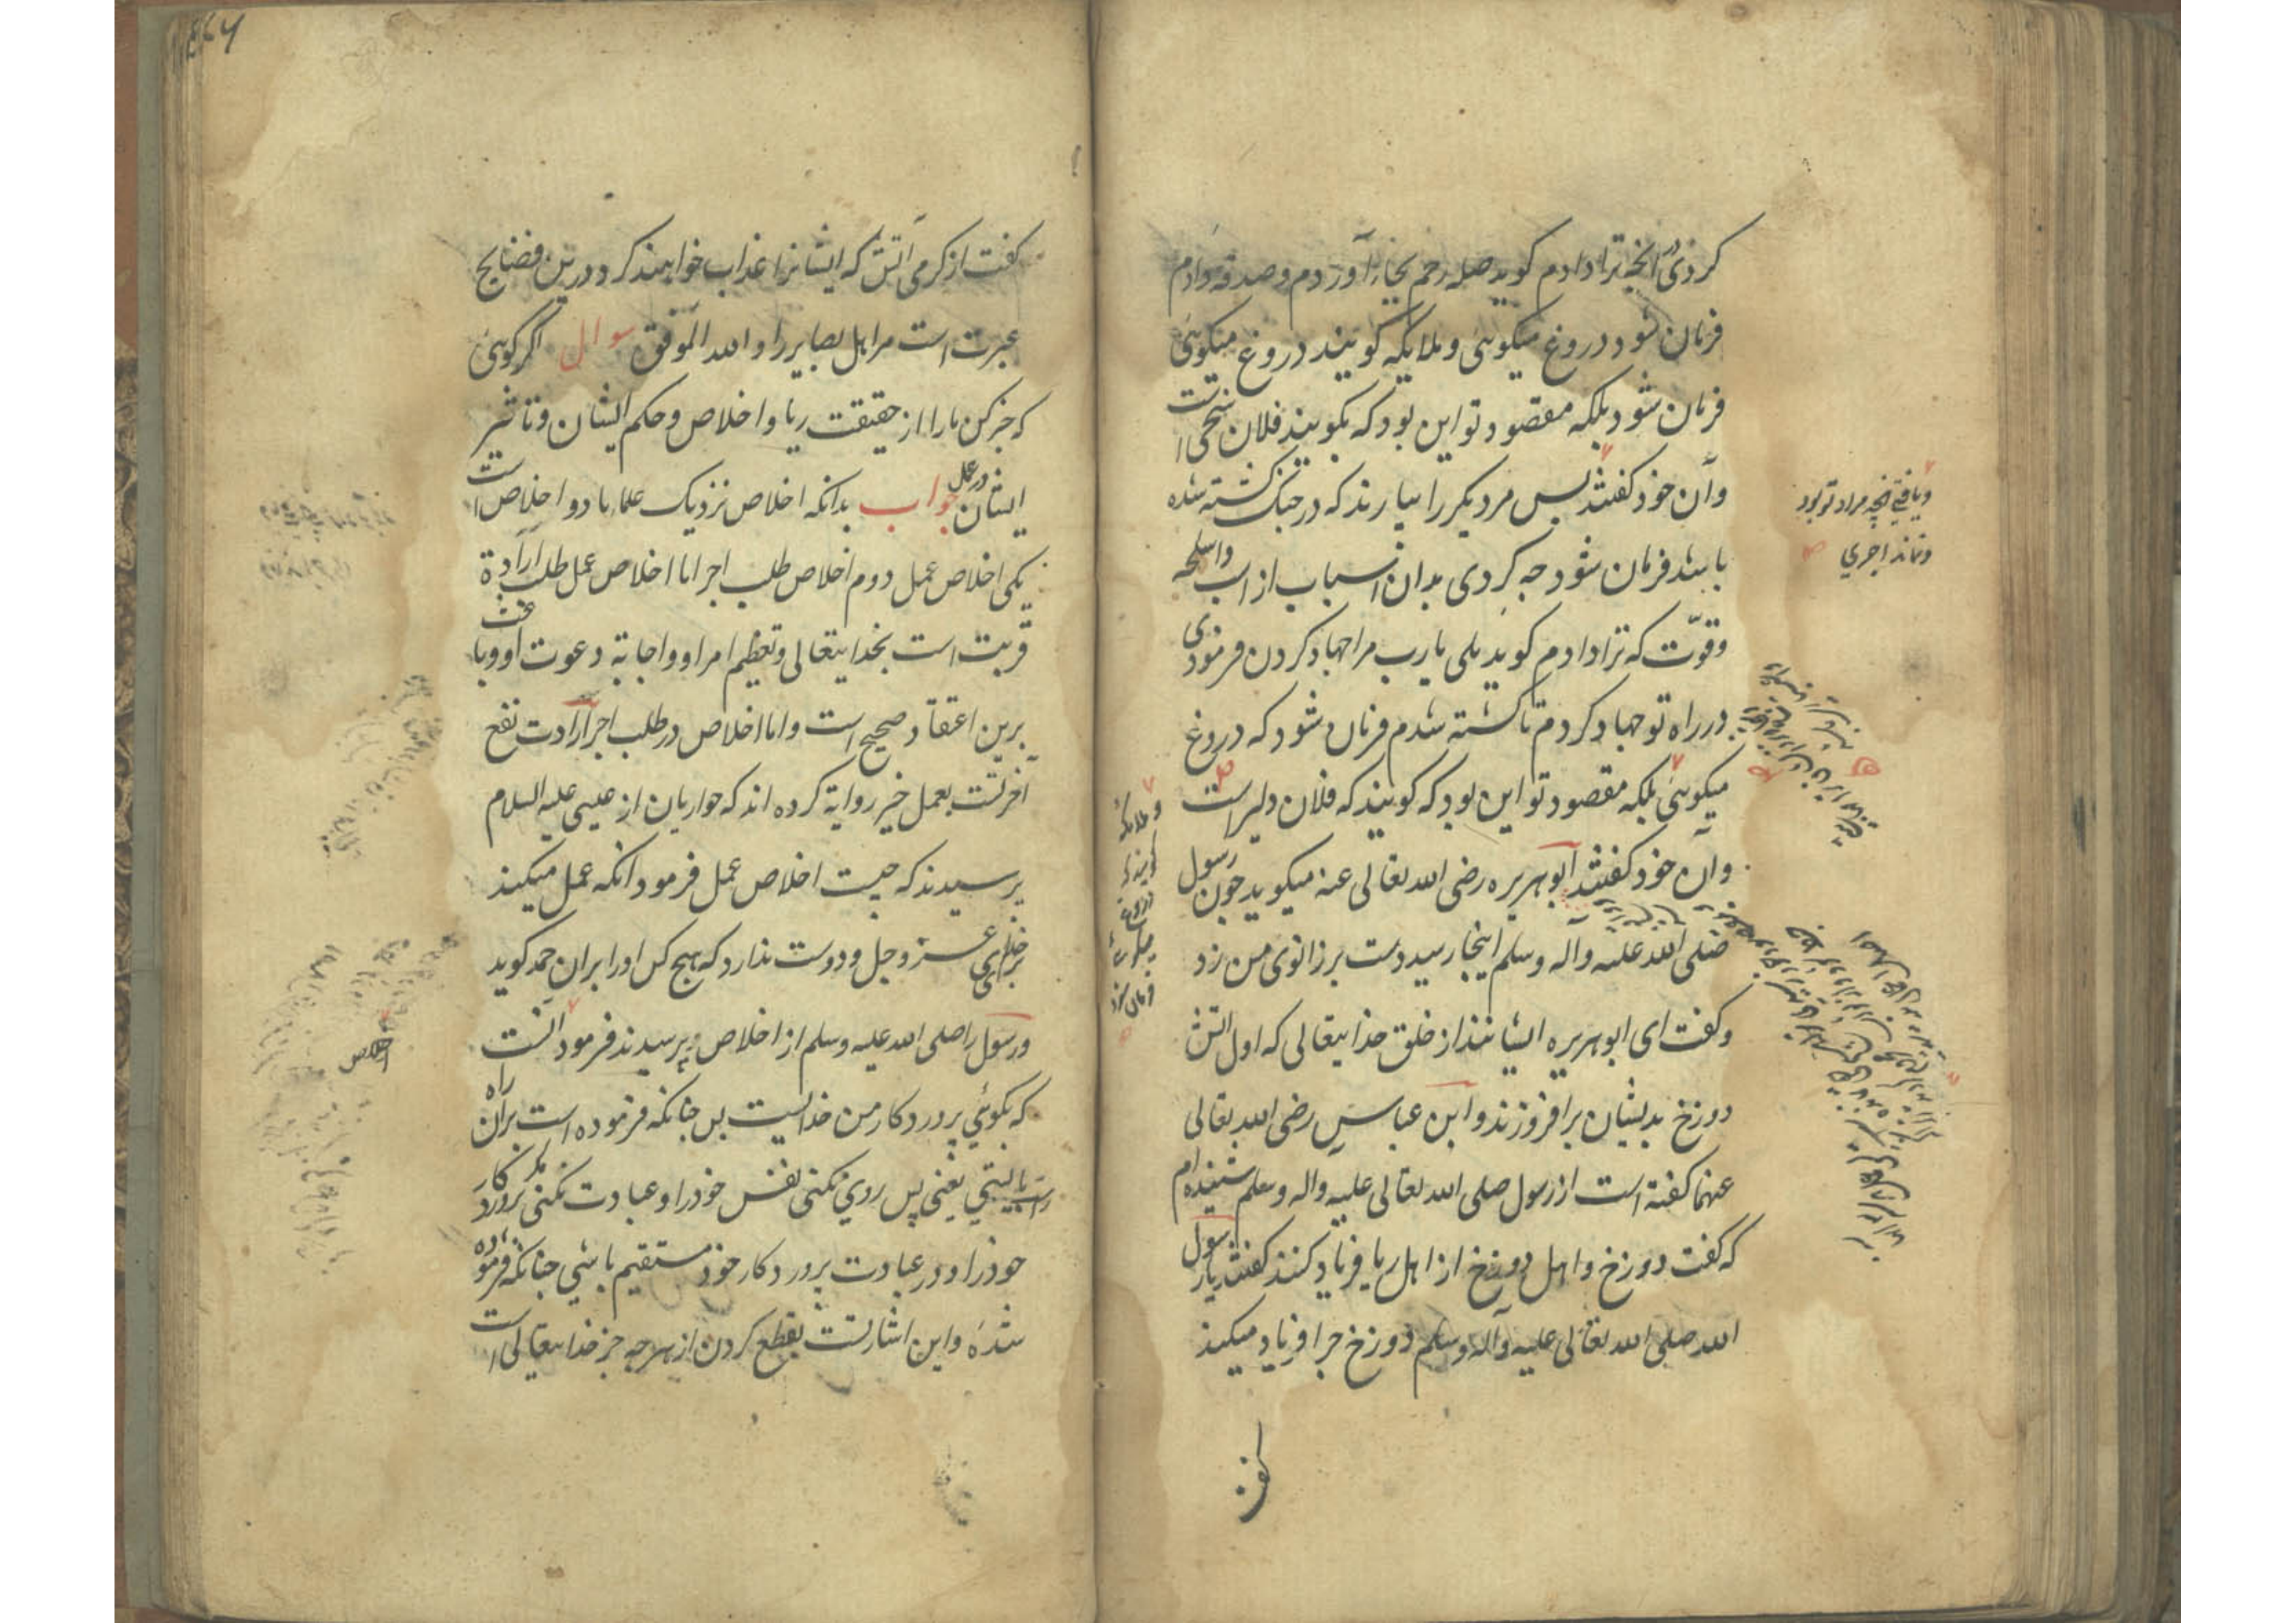 کردی در انچه ترا دادم کوید صله رحم بجای آوردم و صدقه دادم
فرمان شود دروغ میکوئی و ملایکه کویند دروغ میکوئی
فرمان شود بلکه مقصود تو این بود که بکویند فلان سخی است
وآن خود کفتند بس مرد دیکر را بیارند که در جنک کشته شده
باشد فرمان شود جه کردی بدان اسباب از اسب واسلحه
وقوّت که ترا دادم کوید بلی یارب مرا جهاد کردن فرمودی
در راه تو جهاد کردم تا کشته شدم فرمان شود که دروغ
میکوئی بلکه مقصود تو این بود که کویند که فلان دلیر است
وآن خود کفتند ابوهریره رضی الله تعالی عنه میکوید جون رسول
صلی الله علیه وآله وسلم اینجا رسید دست بر زانوی من زد
وکفت ای ابوهریره ایشانند از خلق خدایتعالی که اول اتش
دوزخ بدیشان برافروزند وابن عباس رضی الله تعالی
عنهما کفته است از رسول صلی الله تعالی علیه واله وسلم شنیده ام
که کفت دوزخ واهل دوزخ از اهل ریا فریاد کنند کفتند یا رسول
الله صلی الله تعالی علیه وآله وسلم دوزخ جرا فریاد میکند
کفت
ویافتی انچه مراد تو بود
ونماند اجری
وملائکه
کویند که
دروغ
میکوئی
فرمان شود
کفت از کرمی آتش که ایشانرا عذاب خواهند کرد ودرین فضایح
عبرت است مر اهل بصایر را والله الموفق سوال اکر کوئی
که خبر کن مارا از حقیقت ریا واخلاص وحکم ایشان وتاثیر
ایشان در عمل جواب بدانکه اخلاص نزدیک علماء ما دو اخلاص است
یکی اخلاص عمل دوم اخلاص طلب اجر اما اخلاص عمل طلب ارادة
قربت است بخدایتعالی وتعظیم امر او واجابة دعوت او وباعث
برین اعتقاد صحیح است واما اخلاص در طلب اجر ارادت نفع
آخرتست بعمل خیر روایة کرده اند که حواریان از عیسی علیه السلام
پرسیدند که جیست اخلاص عمل فرمود انکه عمل میکند
برای خدای عز وجل ودوست ندارد که هیج کس اورا بران حمد کوید
ورسول را صلی الله علیه وسلم از اخلاص پرسیدند فرمود آنست
که بکوئی پروردکار من خدایست بس جنانکه فرموده است بران راه
راست بایستی یعنی پس روی نکنی نفس خود را وعبادت نکنی مکر پروردکار
خود را ودر عبادت پروردکار خود مستقیم باشی جنانکه فرموده
شدهٔ واین اشارتست بقطع کردن از هرجه جز خدایتعالی است
اخلاص